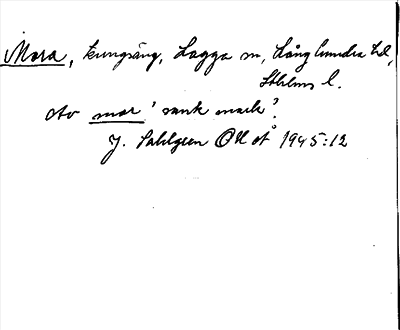 Mora, kungsäng, Lagga sn, Långhundra hd,
Sthlms l.
Av mor 'sank mark'.
J. Sahlgren OUÅ 1945:12